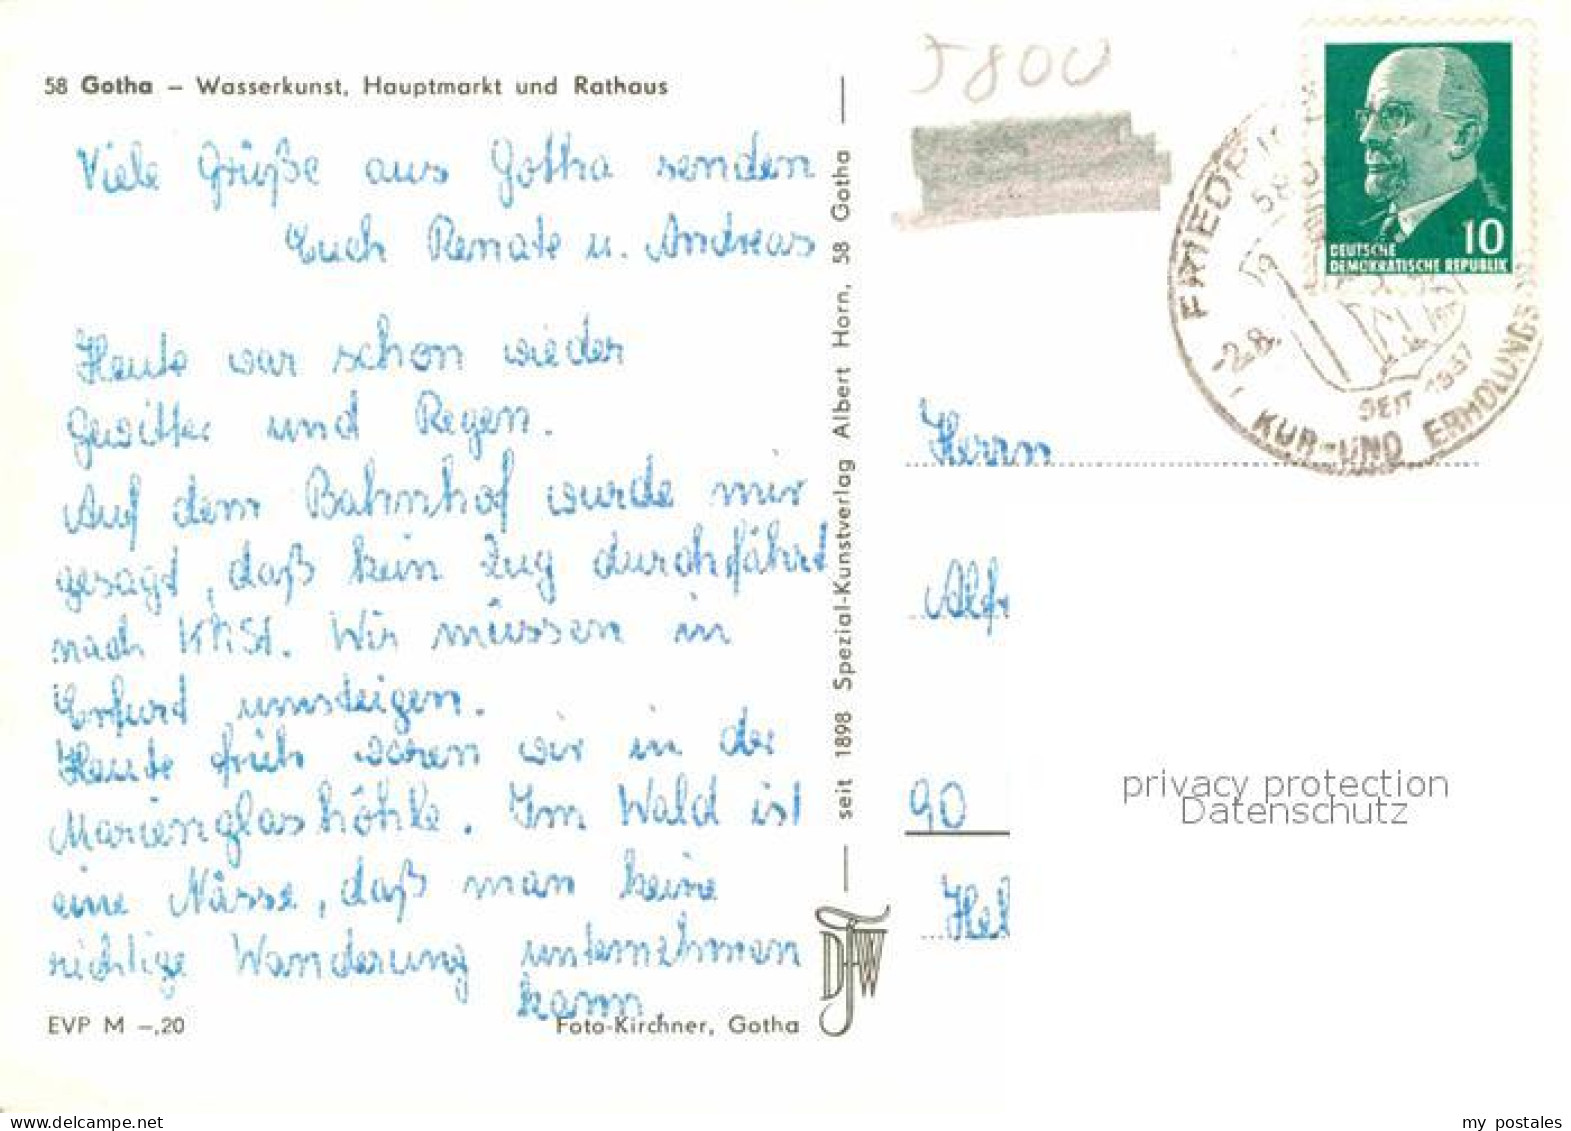 58 Gotha – Wasserkunst, Hauptmarkt und Rathaus
Viele Grüße aus Gotha senden
Euch Renate u. Andreas
Heute war schon wieder
Gewitter und Regen.
Auf dem Bahnhof wurde mir
gesagt, daß kein Zug durchfährt
nach KMSt. Wir müssen in
Erfurt umsteigen.
Heute früh waren wir in der
Marienglashöhle. Im Wald ist
eine Nässe, daß man keine
richtige Wanderung unternehmen
kann.
EVP M –,20
Foto-Kirchner, Gotha
seit 1898 Spezial-Kunstverlag Albert Horn, 58 Gotha
DFW
5800
10
DEUTSCHE
DEMOKRATISCHE REPUBLIK
58
-2.8.
SEIT 1837
KUR-UND ERHOLUNGS
Herrn
Alfr
90
Hel
privacy protection
Datenschutz
my postales